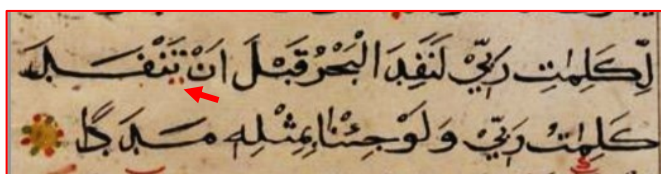 لِّكَلِمٰتِ رَبِّيْ لَنَفِدَ الْبَحْرُ قَبْلَ اَنْ تَنْفَدَ
كَلِمٰتُ رَبِّيْ وَلَوْ جِئْنَا بِمِثْلِهٖ مَدَدًا